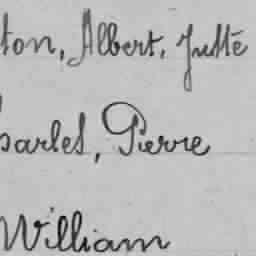 ton, Albert, Jutté
harles, Pierre
William